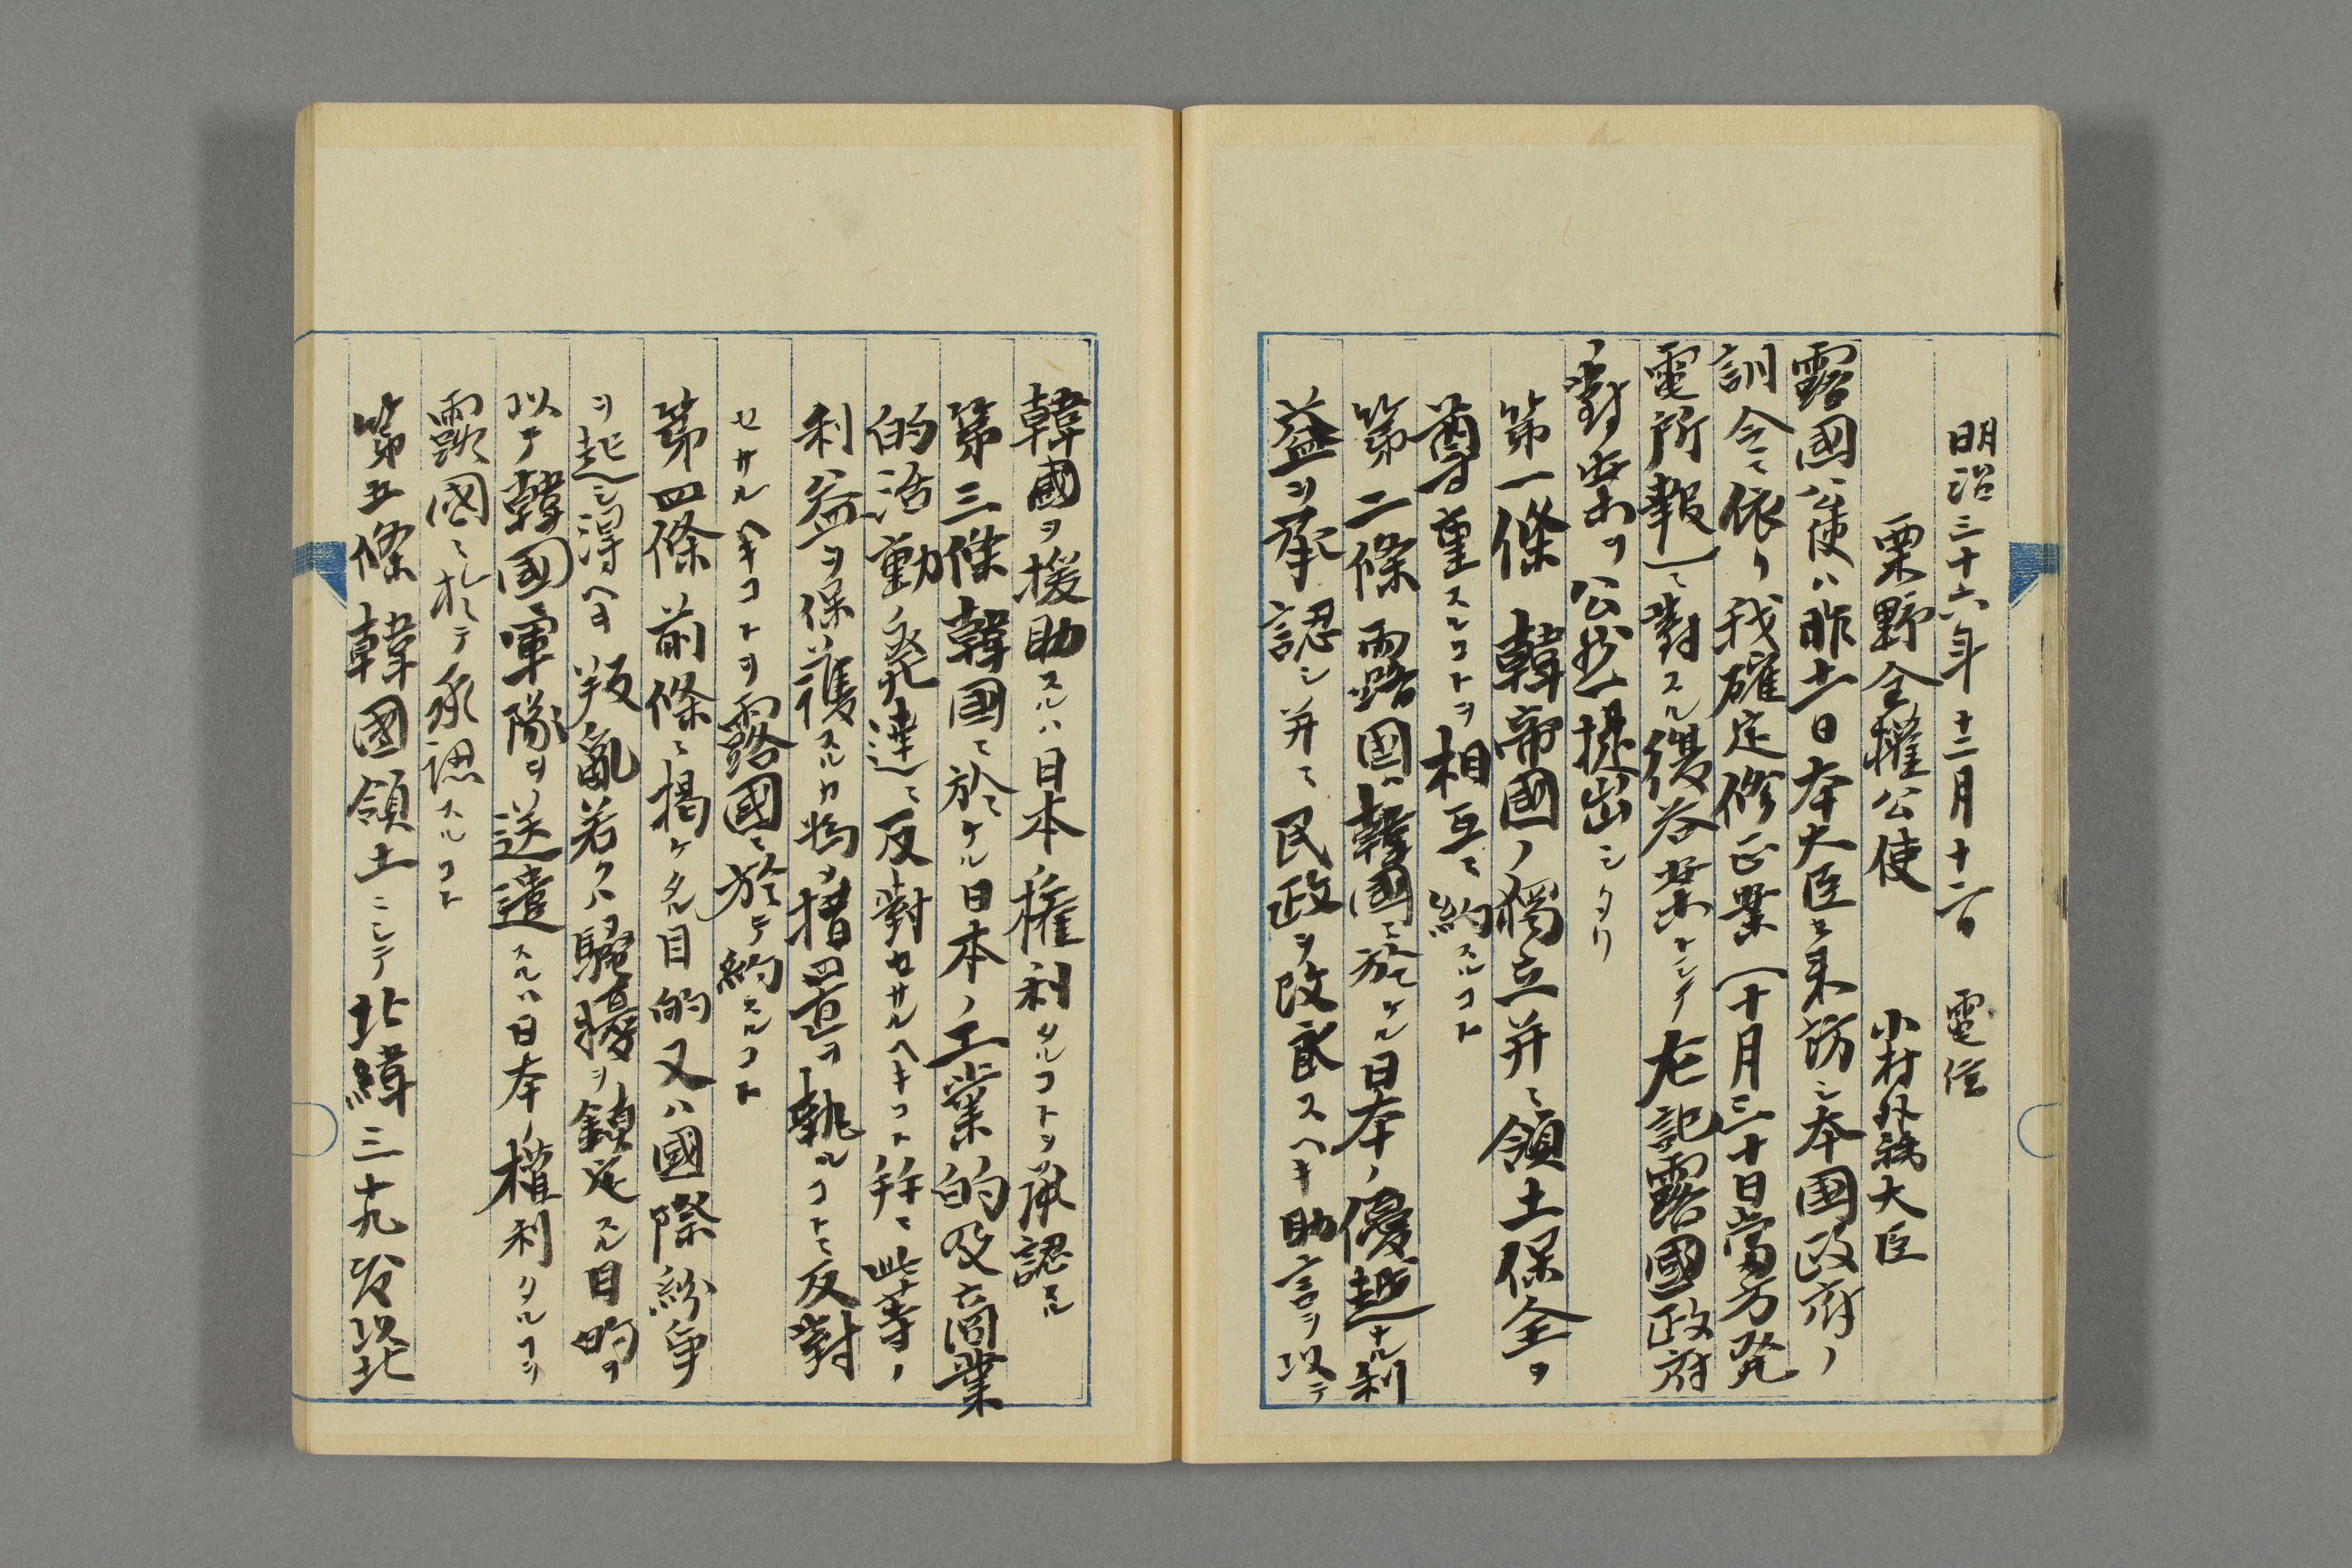 明治三十六年十二月十二日 電信
栗野全權公使 小村外務大臣
露國公使ハ昨十一日本大臣ヲ來訪シ本國政府ノ
訓令ニ依リ我確定修正案(十月三十日當方発
電所報)ニ對スル復答案トシテ左記露國政府
ノ對案ヲ公然提出シタリ
第一條 韓帝國ノ獨立并ニ領土保全ヲ
尊重スルコトヲ相互ニ約スルコト
第二條 露國ハ韓國ニ於ケル日本ノ優越ナル利
益ヲ承認シ并ニ民政ヲ改良スヘキ助言ヲ以テ
韓國ヲ援助スルハ日本ノ權利タルコトヲ承認スル
第三條 韓國ニ於ケル日本ノ工業的及商業
的活動ノ発達ニ反對セサルヘキコト并ニ此等ノ
利益ヲ保護スルカ爲メ措置ヲ執ルコトニ反對
セサルヘキコトヲ露國ニ於テ約スルコト
第四條 前條ニ掲ケタル目的又ハ國際紛爭
ヲ起シ得ヘキ叛亂若クハ騷擾ヲ鎮定スル目的ヲ
以テ韓國軍隊ヲ送遣スルハ日本ノ權利タルコヲ
露國ニ於テ承認スルコト
第五條 韓國領土ニシテ北緯三十九度以北